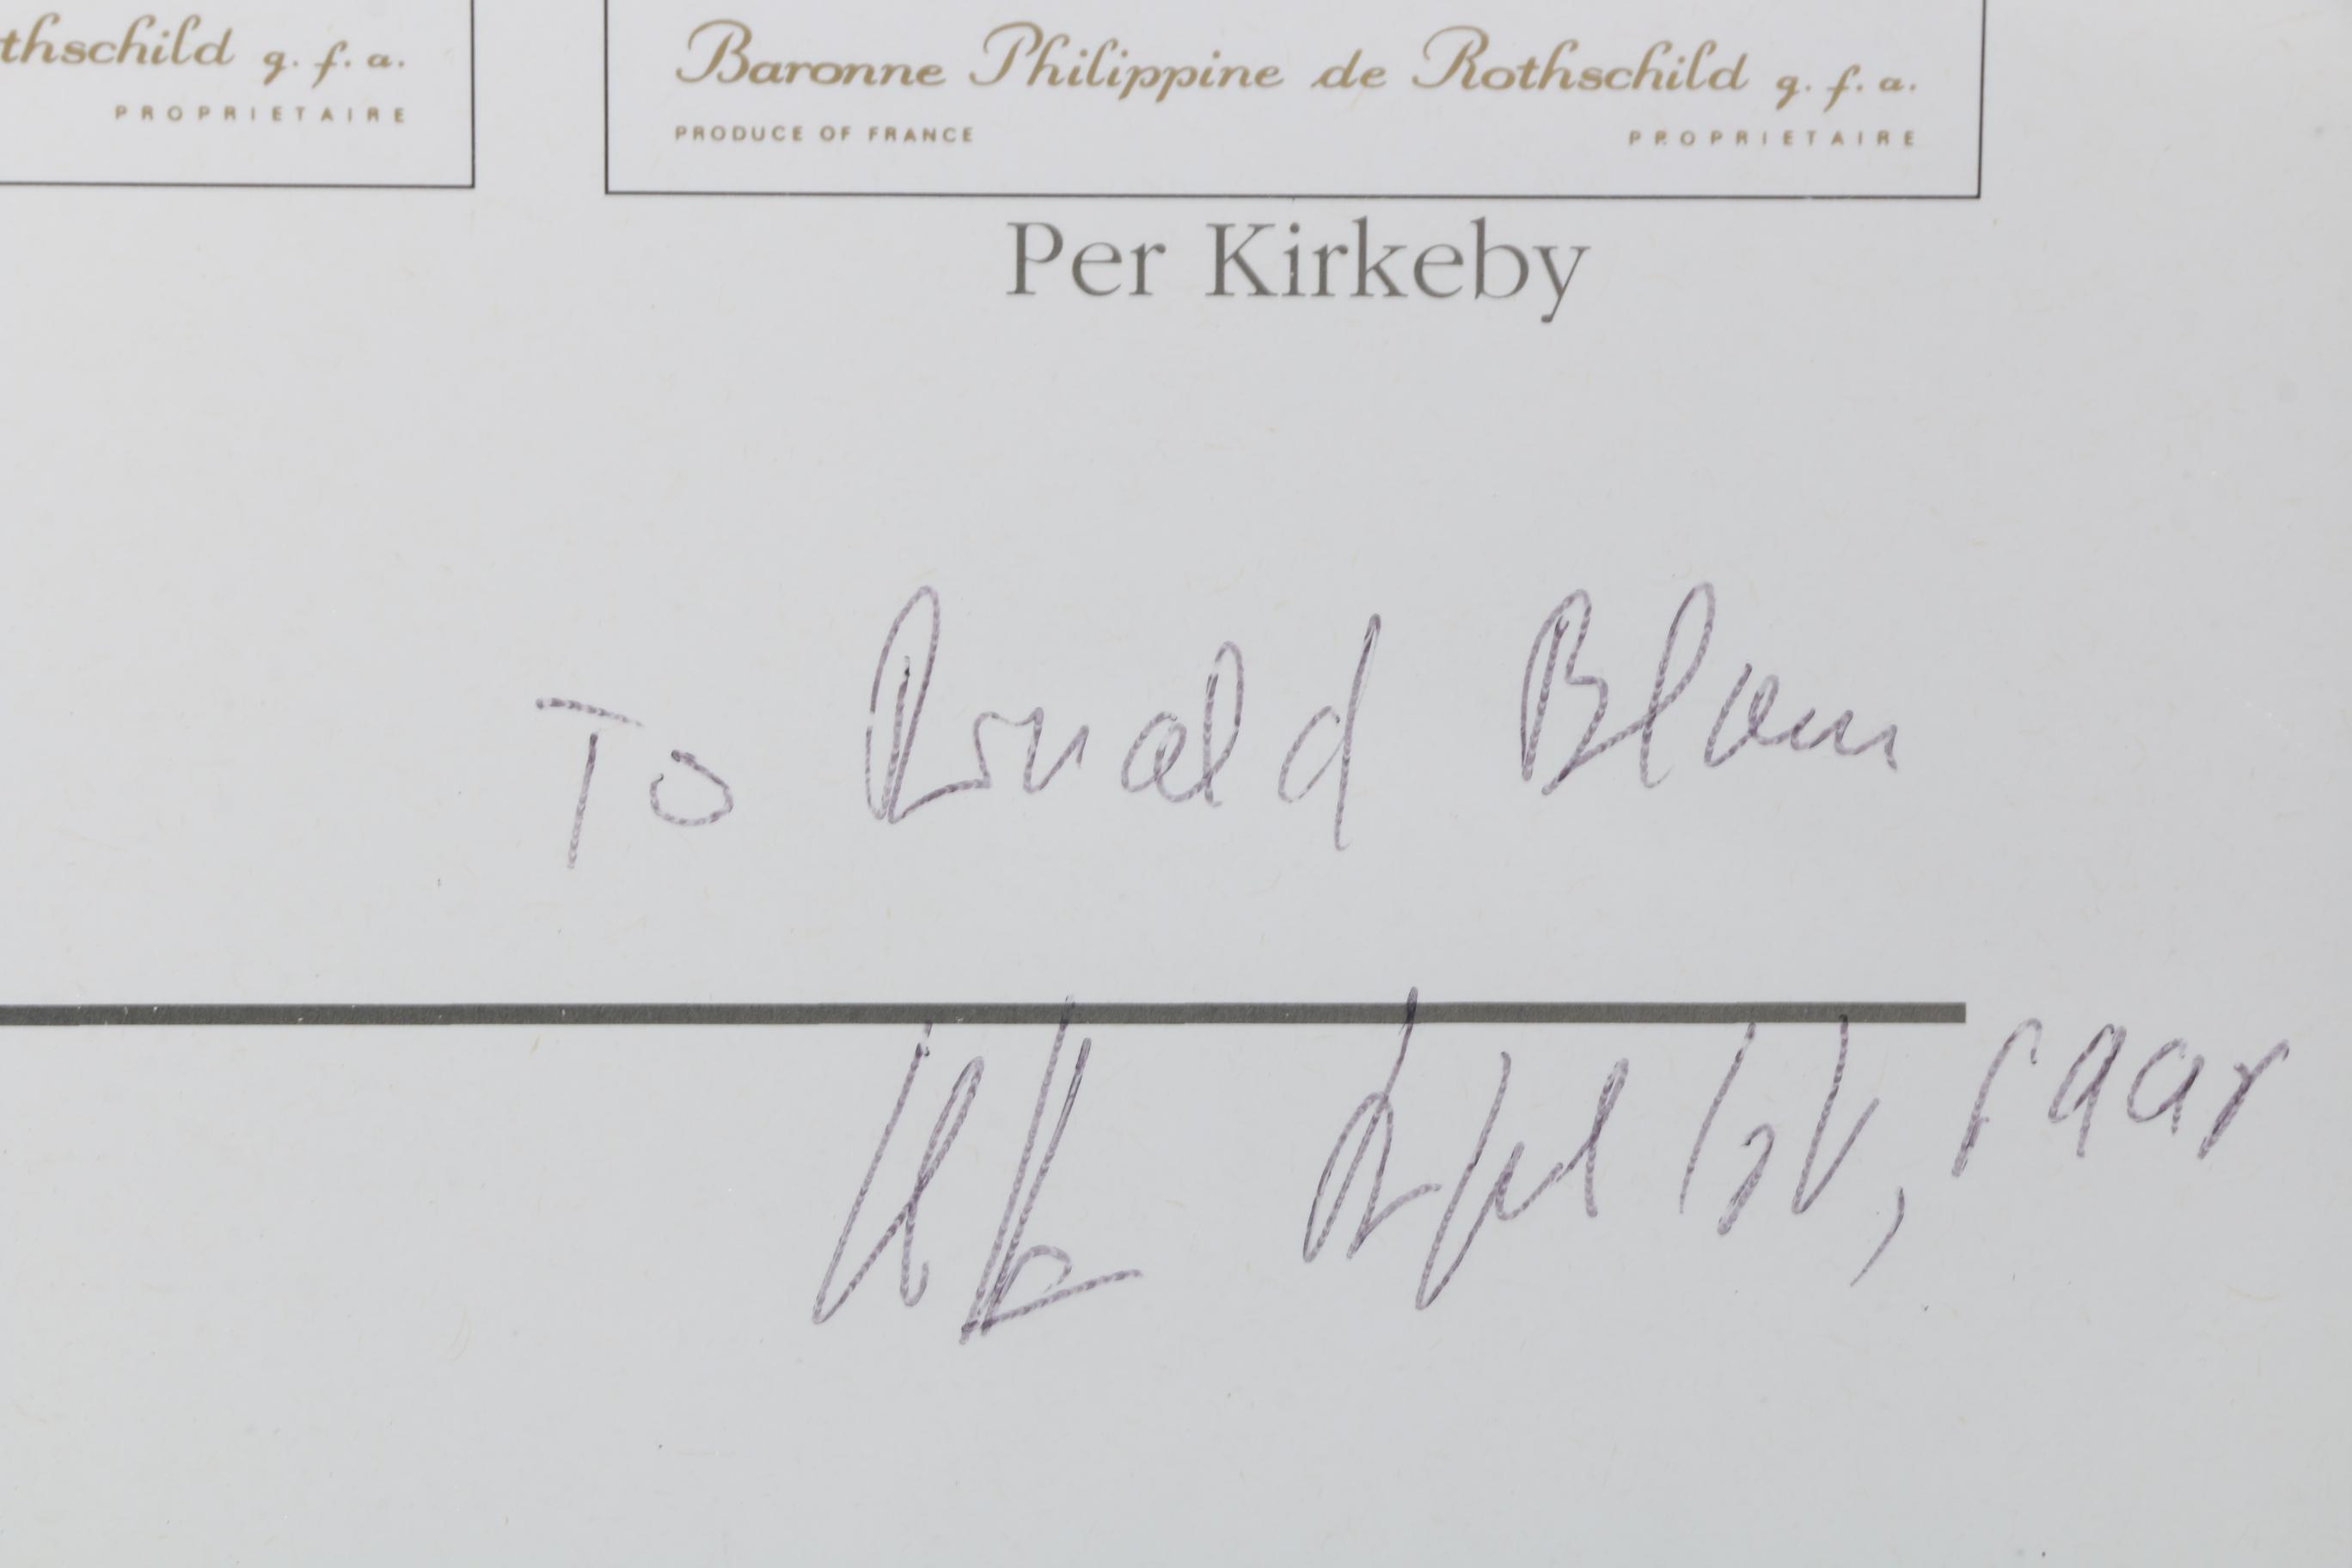 thschild g. f. a.
PROPRIETAIRE
Baronne Philippine de Rothschild g. f. a.
PRODUCE OF FRANCE PROPRIETAIRE
Per Kirkeby
To Ronald Blom